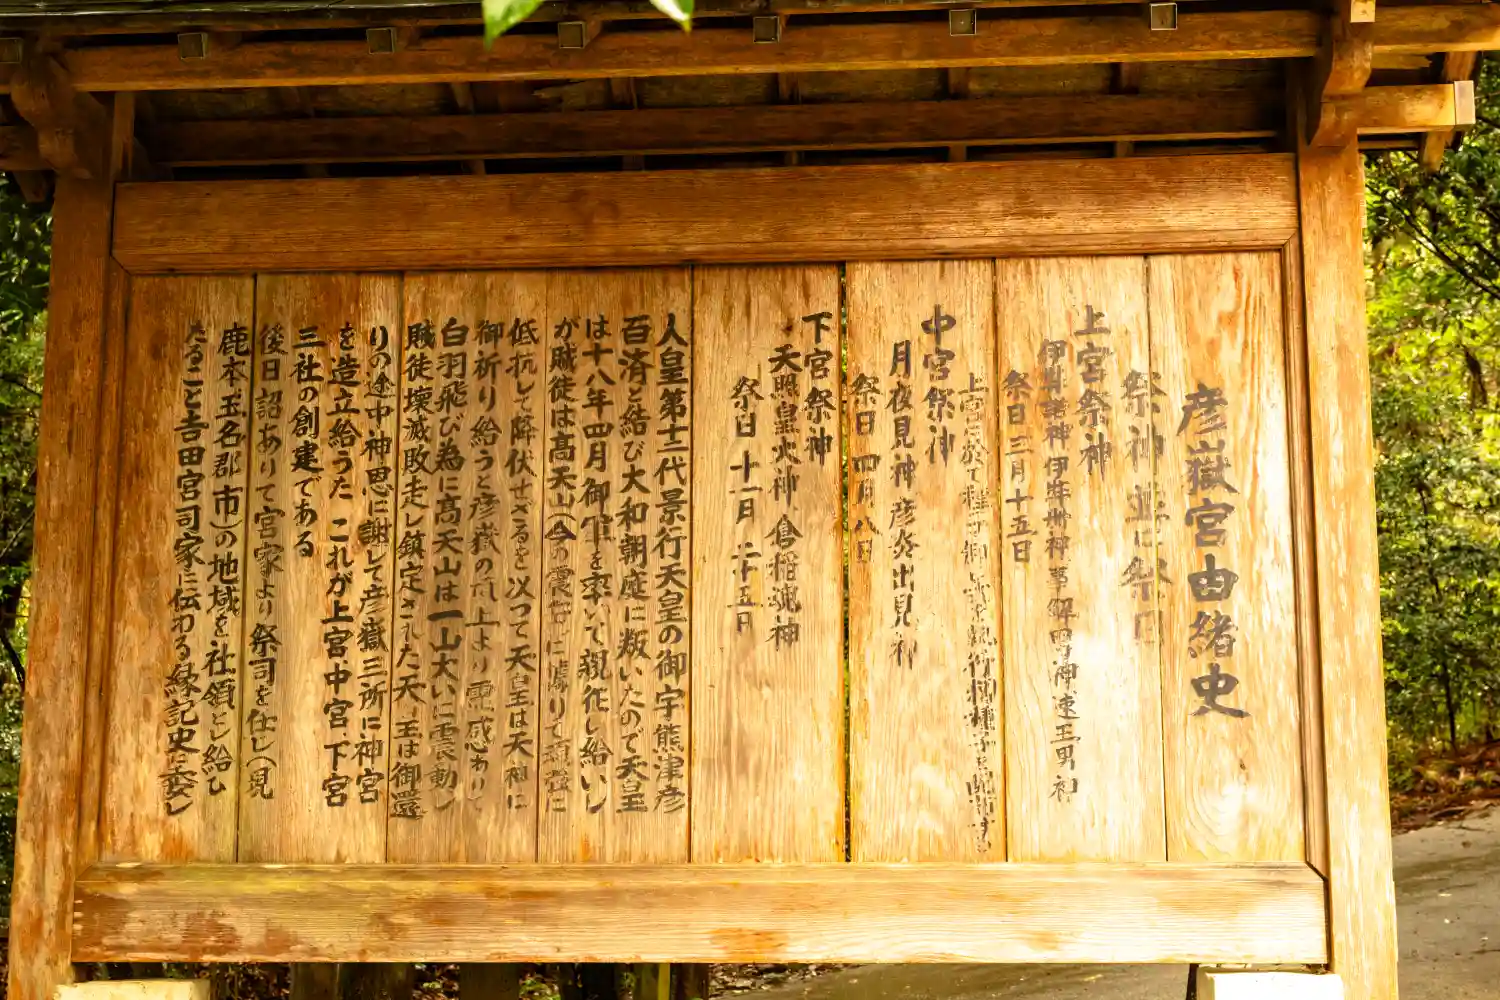 彦嶽宮由緒史
祭神並に祭日
上宮祭神
伊弉諾神 伊弉冊神 軍解男神 速玉男神
祭日三月十五日
上宮に於て種
中宮祭神
月夜見神 彦炎出見神
祭日 四月八日
下宮祭神
天照皇大神 倉稲魂神
祭日 十一月二十五日
人皇第十二代景行天皇の御宇熊津彦
百済と結び大和朝庭に叛いたので天皇
は十八年四月御軍を率いて親征し給いし
が賊徒は高天山(今の震岳)に據りて頑強に
低抗して降伏せざるを以つて天皇は天神に
御祈り給うと彦嶽の頂上より霊感あり
白羽飛び為に高天山は一山大いに震動し
賊徒壊滅敗走し鎮定された天王は御還
りの途中神恩に謝して彦嶽三所に神宮
を造立給うた これが上宮中宮、下宮
三社の創建である
後日詔ありて宮家より祭司を仕し(現
鹿本、玉名郡市)の地域を社領とし給ひ
たること吉田宮司家に伝わる縁記史に委し